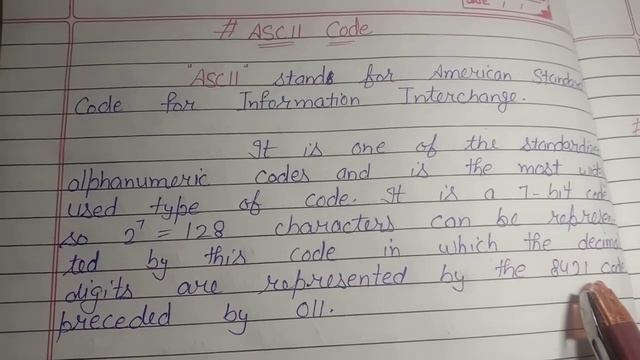 # ASCII Code
"ASCII" stands for American Standard
Code for Information Interchange.
It is one of the standardize
alphanumeric codes and is the most
used type of code. It is a 7-bit code
so 2⁷ = 128 characters can be represen
ted by this code in which the decimal
digits are represented by the 8421 code
preceded by 011.